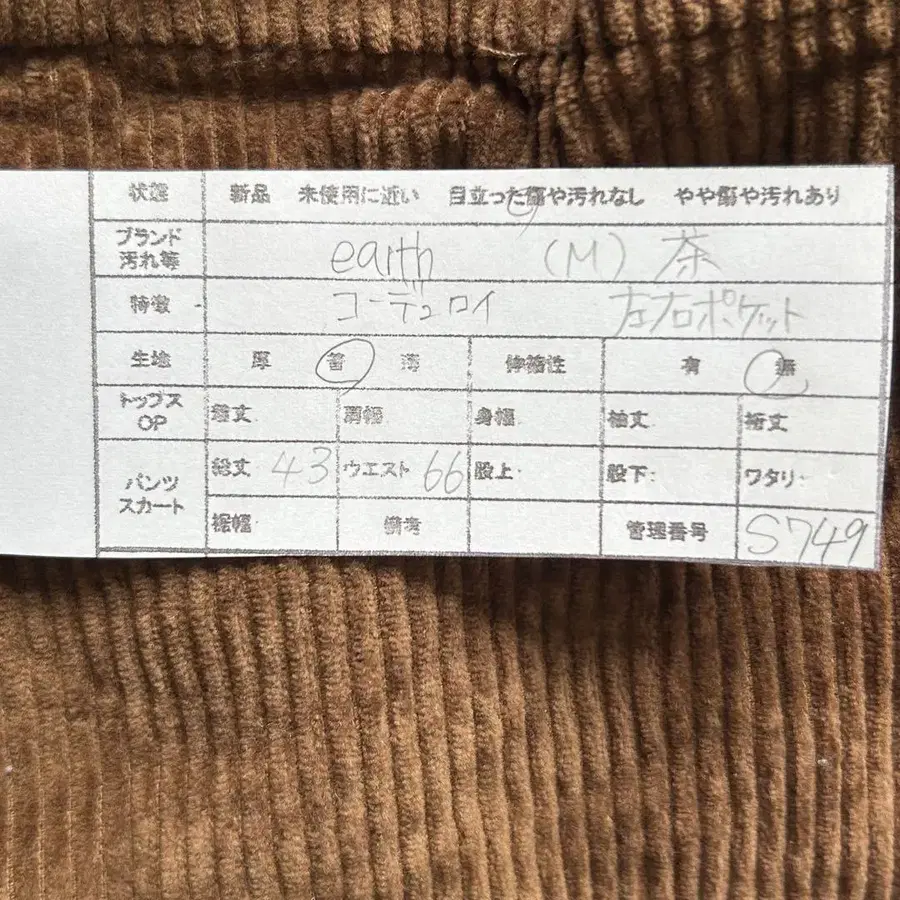 状態 新品 未使用に近い 目立った傷や汚れなし やや傷や汚れあり
ブランド
汚れ等 earth (M) 茶
特徴 コーデュロイ 左右ポケット
生地 厚 普 薄 伸縮性 有 無
トップス
OP 着丈 肩幅 身幅 袖丈 裄丈
パンツ
スカート 総丈 43 ウエスト 66 股上: 股下: ワタリ:
裾幅 備考 管理番号 S749